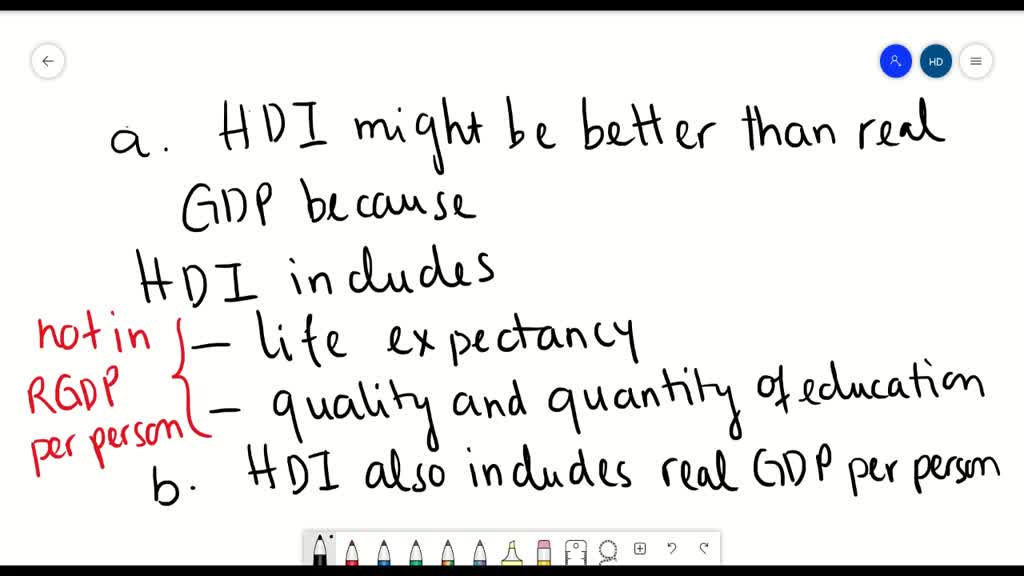 HD
a. HDI might be better than real
GDP because
HDI includes
not in
RGDP
per person
— life expectancy
— quality and quantity of education
b. HDI also includes real GDP per person